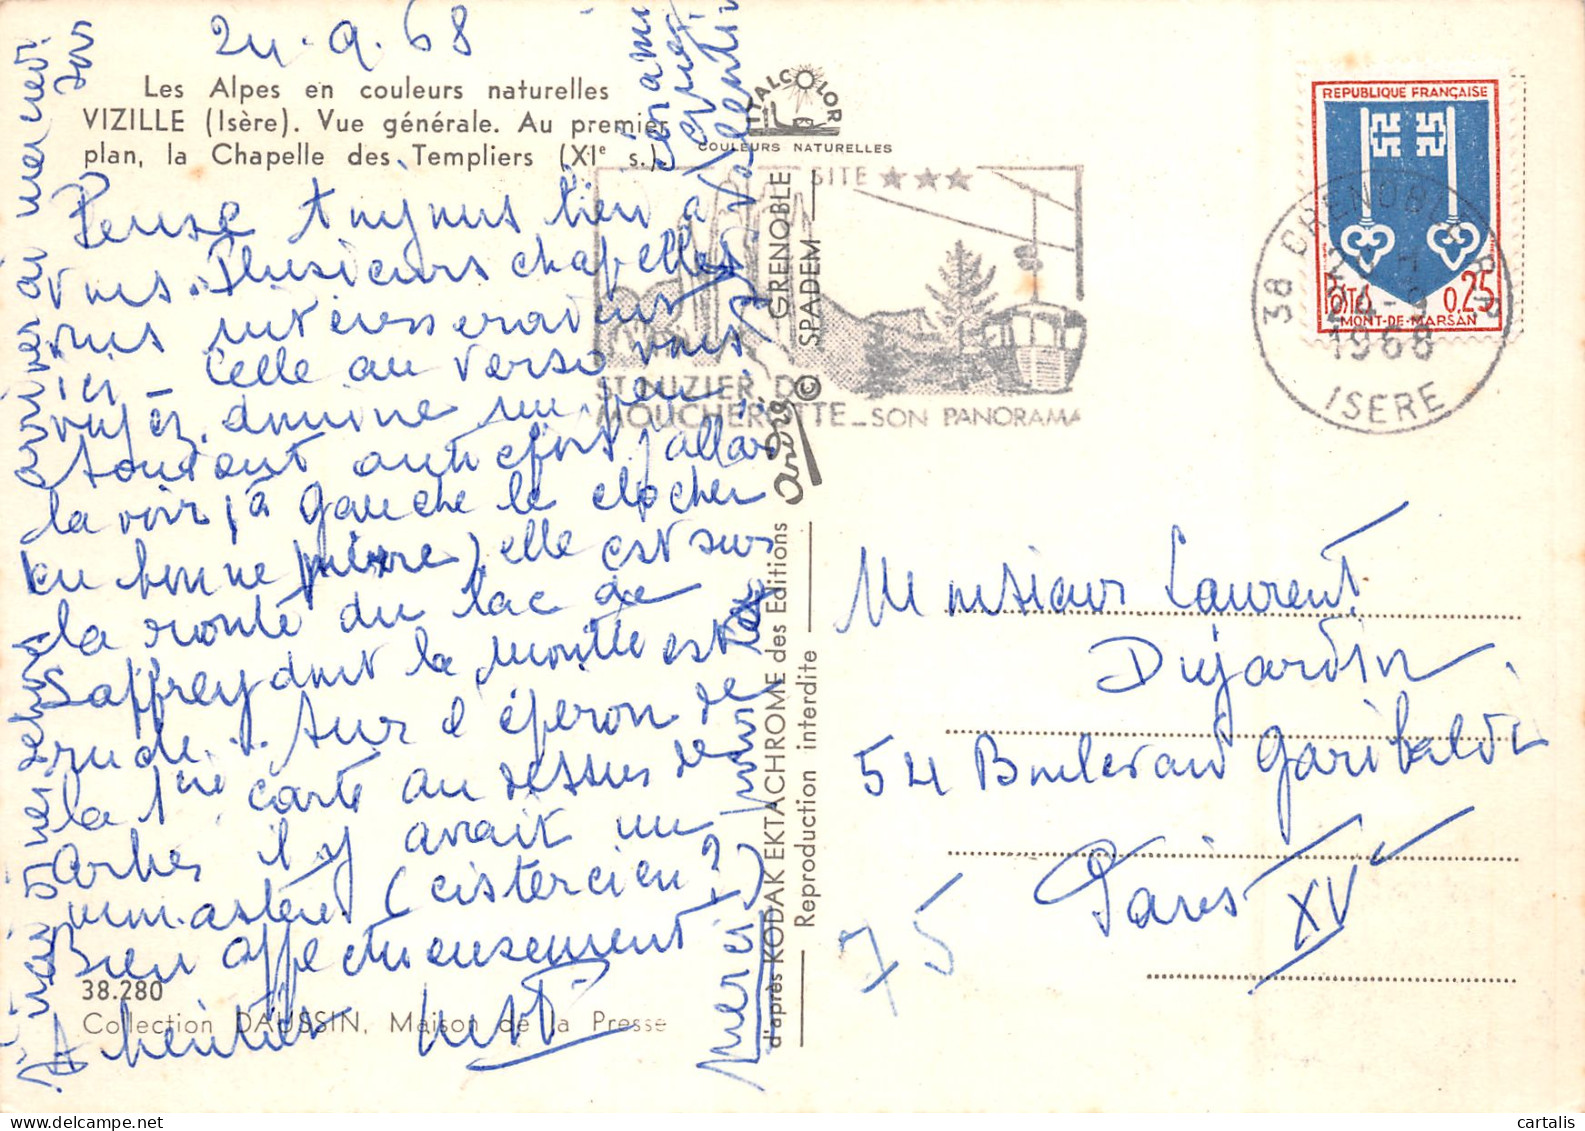 24.9.68
Les Alpes en couleurs naturelles
VIZILLE (Isère). Vue générale. Au premier
plan, la Chapelle des Templiers (XIe s.).
Pense toujours bien à
vous. Plusieurs chapelles
vous intéresseraient
ici – Celle au verso vous
voyez, domine un peu
tout autrefois j'allais
la voir, (à gauche le clocher
en bonne pierre) elle est sur
la route du lac de
Laffrey dont la montée est
rude... Sur l'éperon de
la 1ère carte au dessus de
Arbes il y avait un
monastère (cistercien?)
Bien affectueusement
38.280
Collection DAUSSIN, Maison de la Presse
merci
ITALCOLOR
COULEURS NATURELLES
d'après KODAK EKTACHROME des Editions
andré
© SPADEM
GRENOBLE
Reproduction interdite
SITE ★★★
ST NIZIER DU
MOUCHEROTTE – SON PANORAMA
REPUBLIQUE FRANÇAISE
POSTES 0,25
MONT-DE-MARSAN
38 GRENOBLE R.P.
24-9
1968
ISERE
Monsieur Laurent
Dujardin
54 Boulevard Garibaldi
Paris XV
75
cartalis